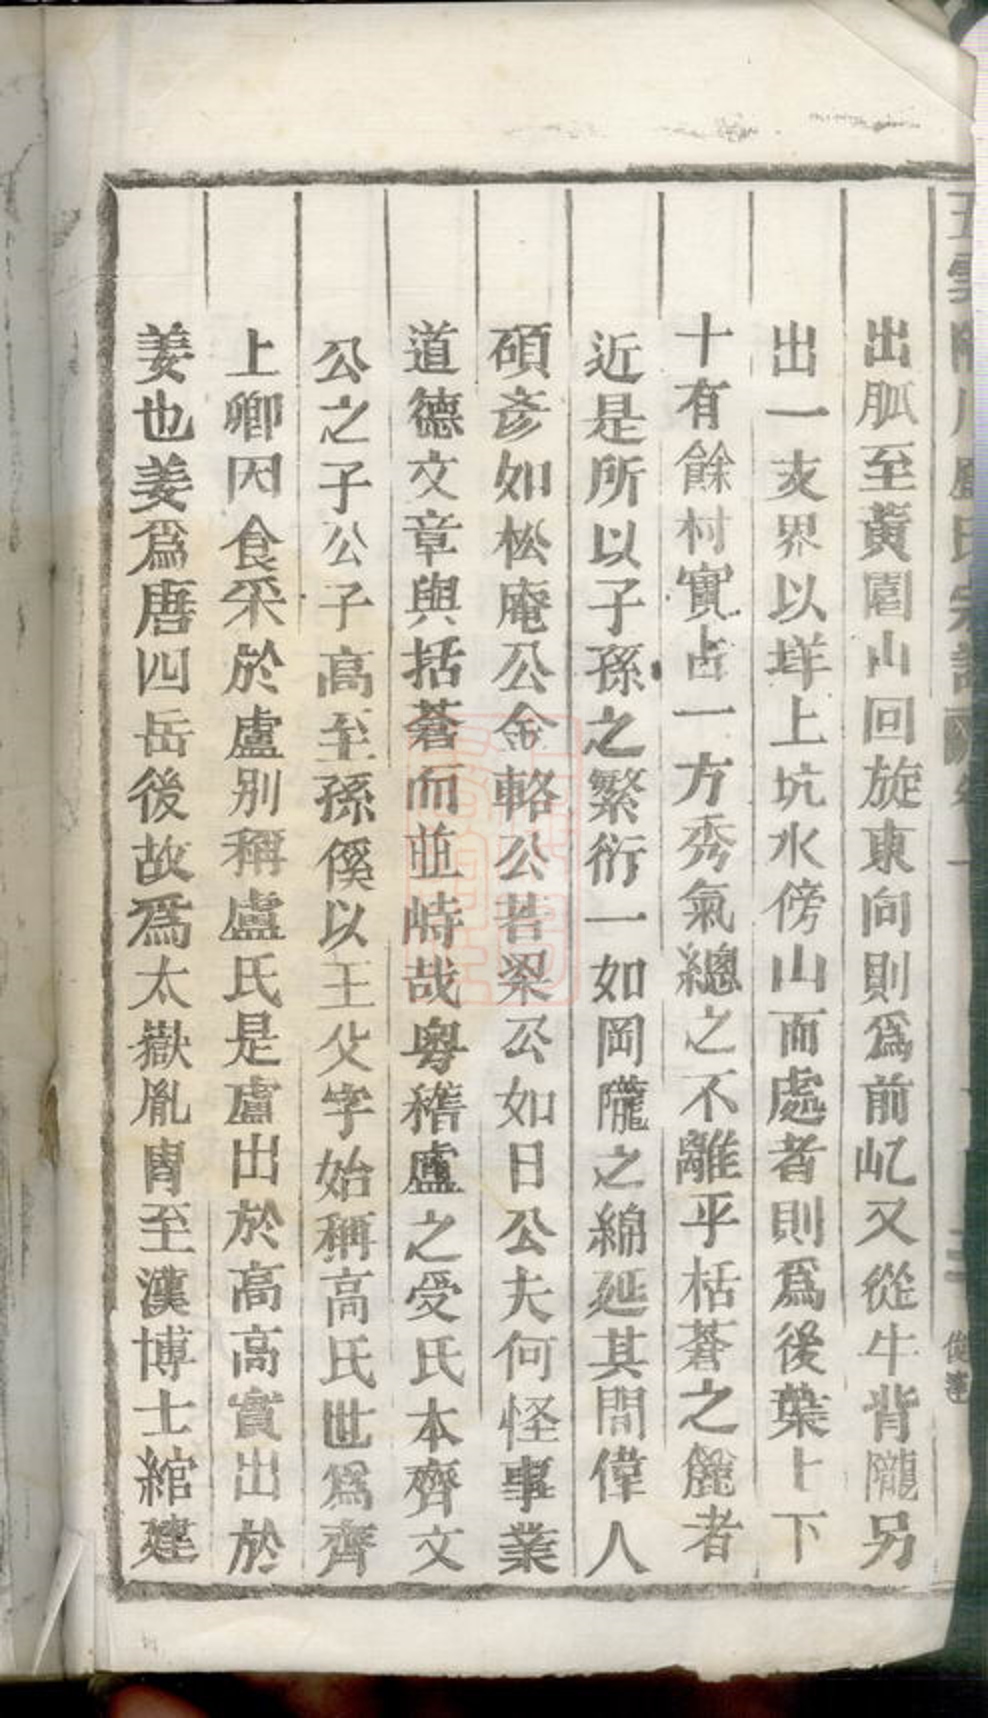 出脈至黃閣山回旋東向則爲前屹又從牛背隴另
出一支界以垟上坑水傍山而處者則爲後葉上下
十有餘村實占一方秀氣總之不離乎栝蒼之麓者
近是所以子孫之繁衍一如岡隴之綿延其間偉人
碩彥如松庵公金輅公若梁公如日公夫何怪事業
道德文章與括蒼而並峙哉粤稽盧之受氏本齊文
公之子公子高至孫傒以王父字始稱高氏世爲齊
上卿因食采於盧別稱盧氏是盧出於高高實出於
姜也姜爲唐四岳後故爲太嶽胤胄至漢博士綰建